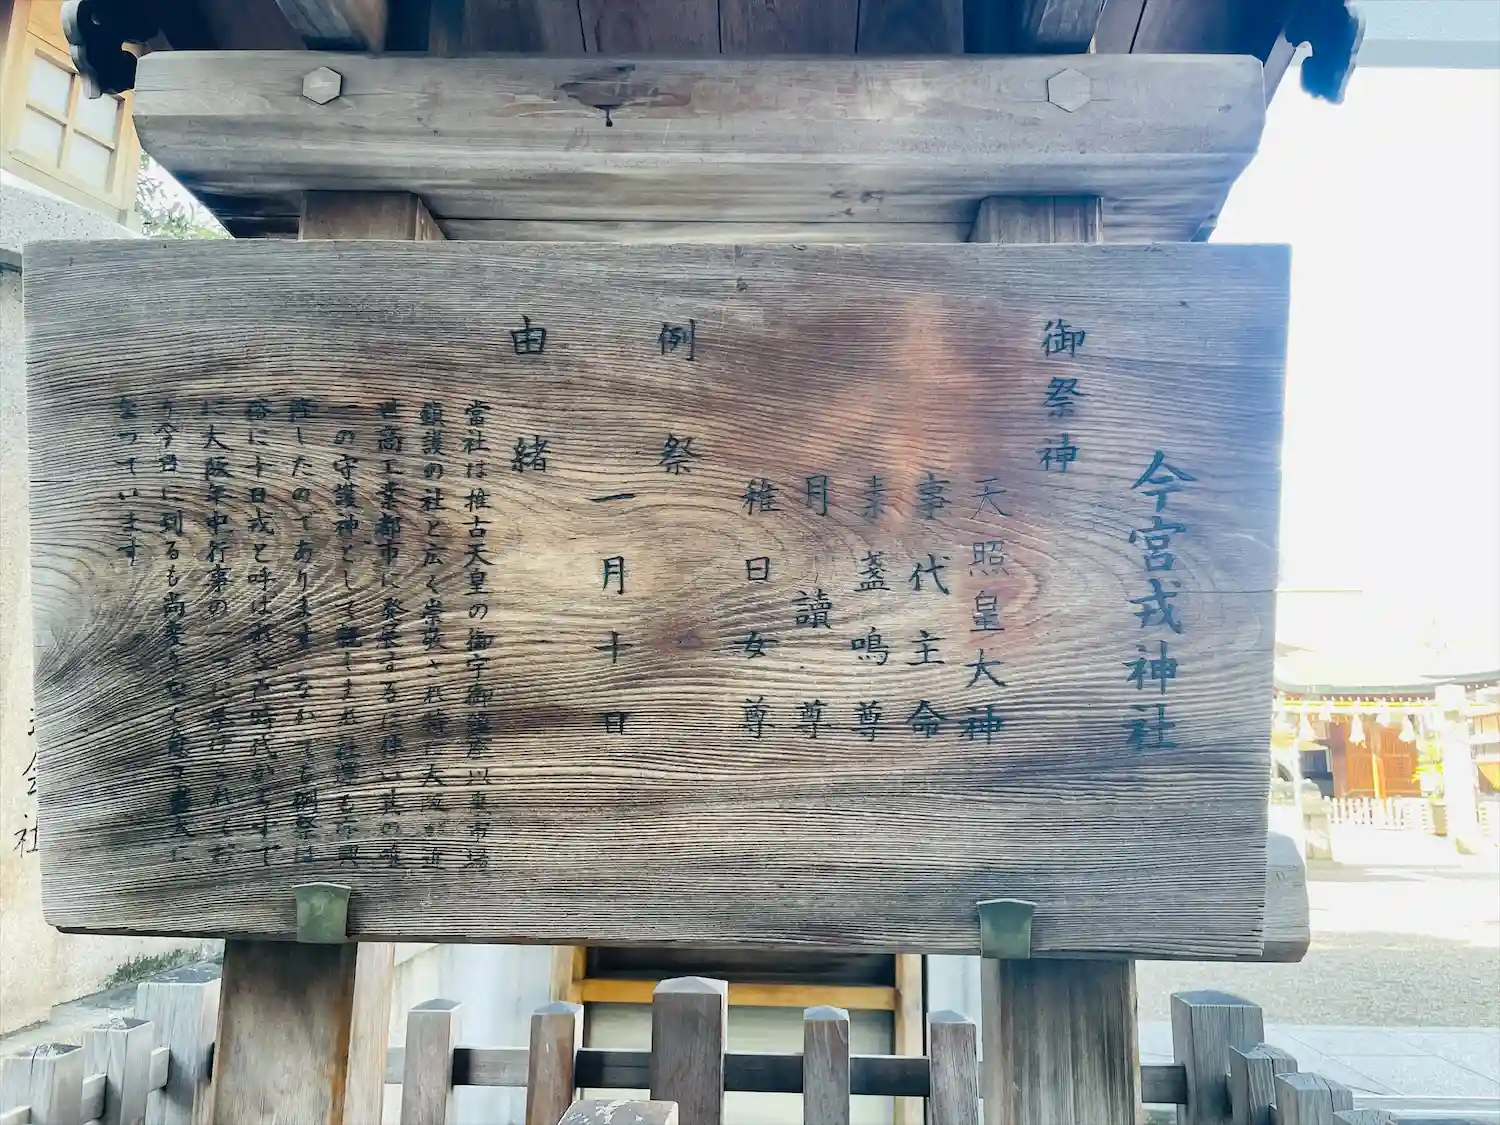 今宮戎神社
御祭神
天照皇大神
事代主命
素盞嗚尊
月讀尊
稚日女尊
例祭
一月十日
由緒
當社は推古天皇の御宇御鎮座以来市場
鎮護の社と広く崇敬され特に大阪が近
世商工業都市に発展するに伴い其の唯
一の守護神として
降したのであります なかでも例祭は
俗に十日戎と呼ばれ
に大阪年中行事の一つに
り今日に到るも尚変りなく
なっています
会社